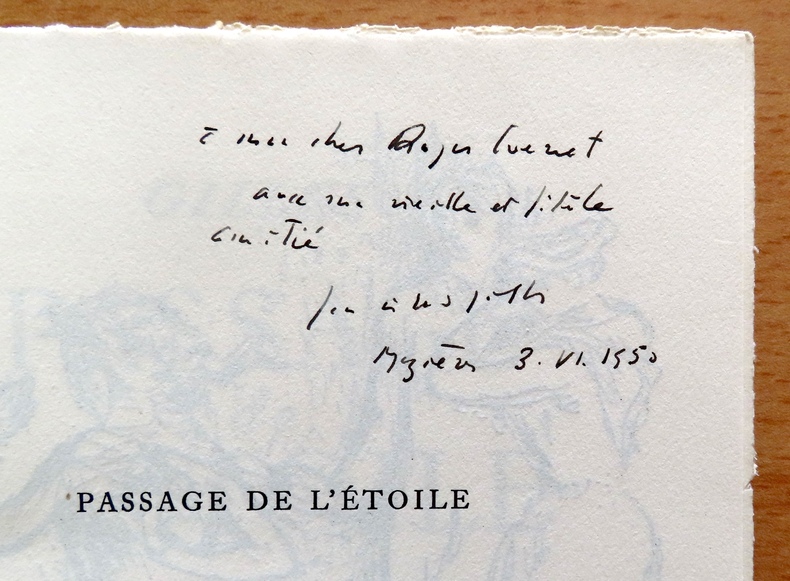 à mon cher Roger
avec ma vieille et fidèle
amitié
Mézières 3. VI. 1950
PASSAGE DE L'ÉTOILE